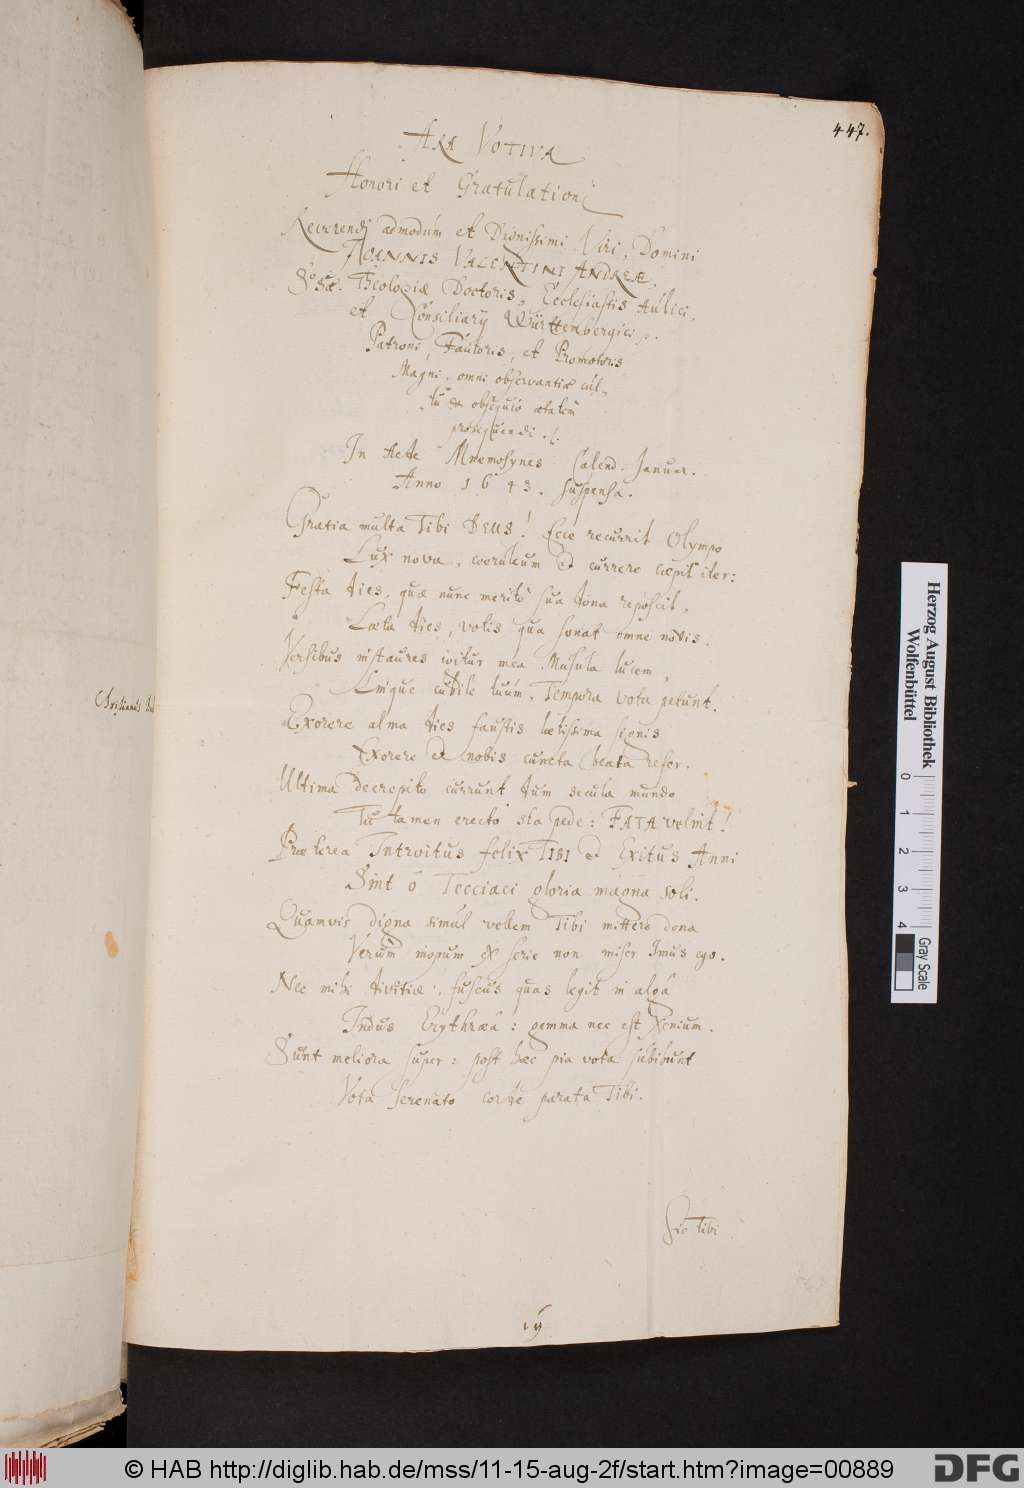 447.
ARA VOTIVA
Honori et Gratulationi
Reverendi admodùm et Dignissimi Viri, Domini
JOANNIS VALENTINI ANDREÆ,
SSæ. Theologiæ Doctoris, Ecclesiastis Aulici,
et Consiliarij Württembergici p.
Patroni, Fautoris, et Promotoris
Magni, omni observantiæ cul,
tu & obsequio ætatem
prosequendi.
In Aede Mnemosynes Calend. Januar.
Anno 1643. suspensa.
Gratia multa Tibi DEUS! Ecce recurrit Olympo
Lux nova, coeruleum et currere cæpit iter:
Festa dies, quæ nunc meritò sua dona reposcit,
Læta dies, votis qua sonat omne novis.
Versibus instaures igitur mea Musula lucem,
Linque cubile tuum. Tempora vota petunt.
Exorere alma dies faustis lætissima signis
Exorere et nobis cuncta beata refer.
Ultima decrepito currunt dum secula mundo
Tu tamen erecto sta pede: FATA velint!
Præterea Introitus felix TIBI et Exitus Anni
Sint ô Tecciaci gloria magna soli.
Quamvis digna simul vellem Tibi mittere dona
Verùm inopum ex serie non miser Imus ego.
Nec mihi divitiæ, fuscus quas legit in algâ
Indus Erythræâ: gemma nec est Xenium.
Sunt meliora super: post hæc pia vota subibunt
Vota serenato corde parata Tibi.
Sic tibi
Christianus
Herzog August Bibliothek
Wolfenbüttel
0 1 2 3 4
Gray Scale
© HAB http://diglib.hab.de/mss/11-15-aug-2f/start.htm?image=00889
DFG